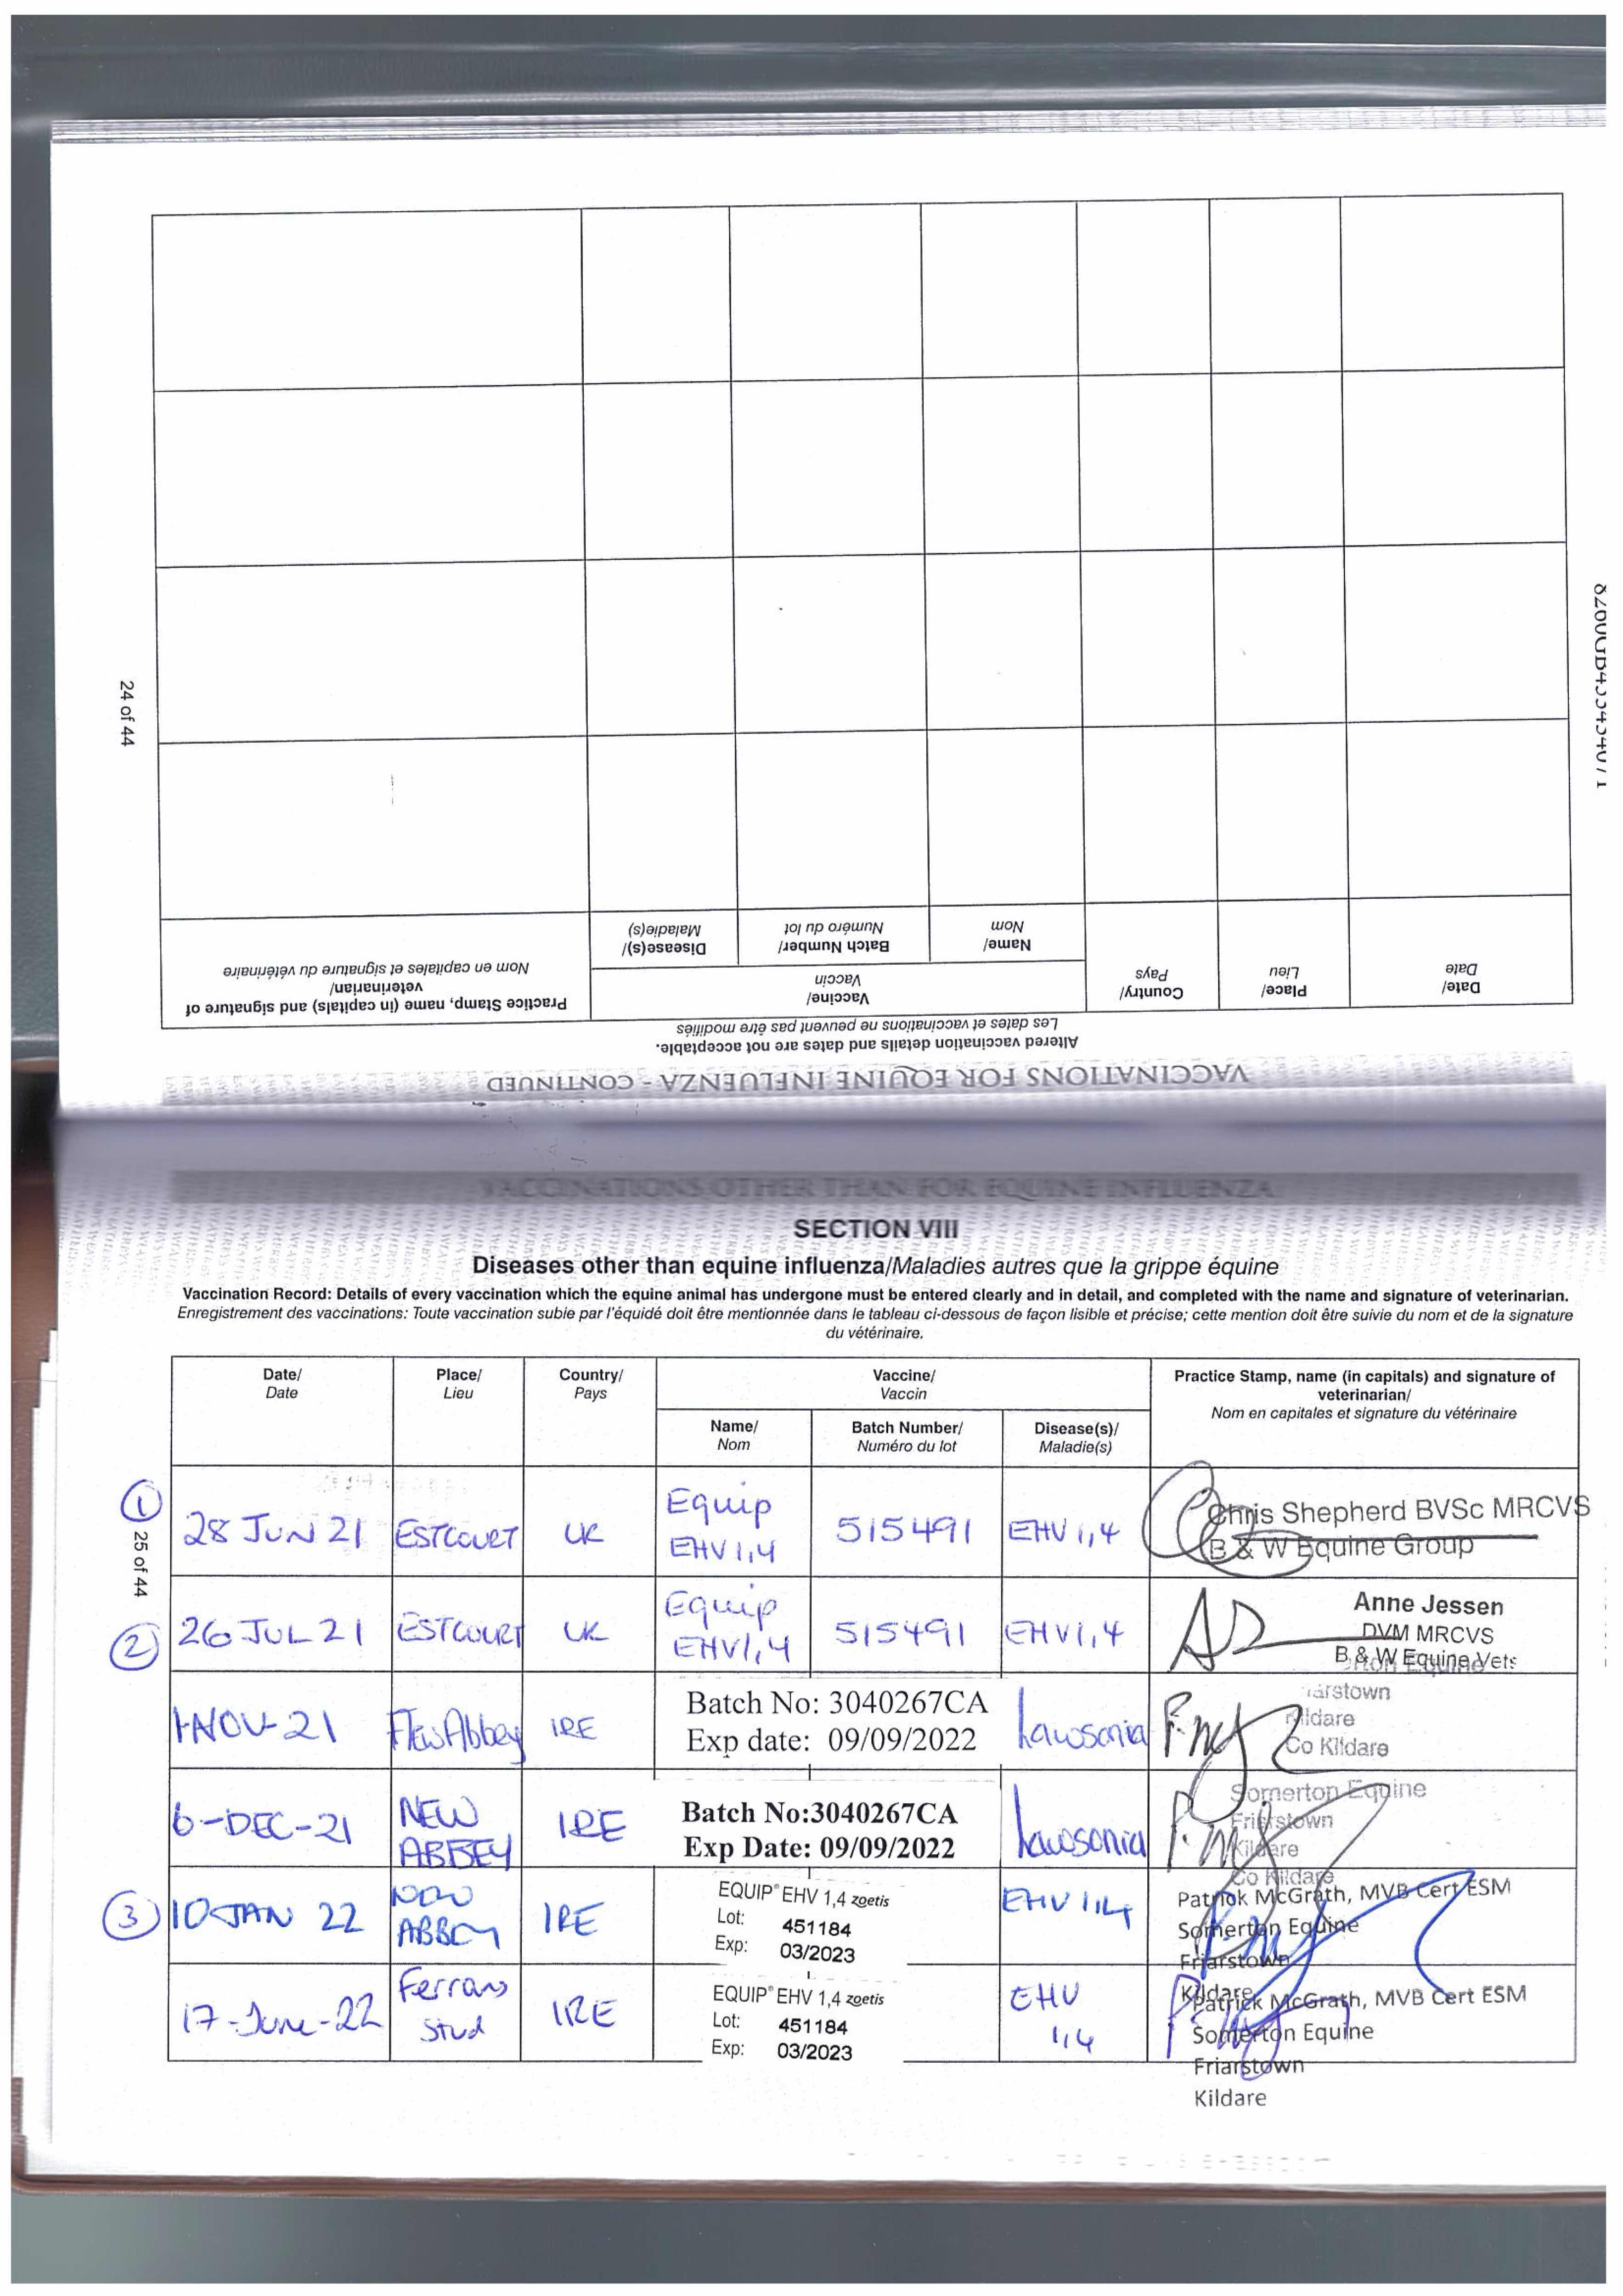 24 of 44
VACCINATIONS FOR EQUINE INFLUENZA - CONTINUED
Altered vaccination details and dates are not acceptable.
Les dates et vaccinations ne peuvent pas être modifiés
Date/
Date
Place/
Lieu
Country/
Pays
Vaccine/
Vaccin
Name/
Nom
Batch Number/
Numéro du lot
Disease(s)/
Maladie(s)
Practice Stamp, name (in capitals) and signature of
veterinarian/
Nom en capitales et signature du vétérinaire
VACCINATIONS OTHER THAN FOR EQUINE INFLUENZA
SECTION VIII
Diseases other than equine influenza/Maladies autres que la grippe équine
Vaccination Record: Details of every vaccination which the equine animal has undergone must be entered clearly and in detail, and completed with the name and signature of veterinarian.
Enregistrement des vaccinations: Toute vaccination subie par l'équidé doit être mentionnée dans le tableau ci-dessous de façon lisible et précise; cette mention doit être suivie du nom et de la signature
du vétérinaire.
Date/
Date
Place/
Lieu
Country/
Pays
Vaccine/
Vaccin
Name/
Nom
Batch Number/
Numéro du lot
Disease(s)/
Maladie(s)
Practice Stamp, name (in capitals) and signature of
veterinarian/
Nom en capitales et signature du vétérinaire
25 of 44
1
28 JUN 21
ESTCOURT
UK
Equip
EHV 1,4
515491
EHV 1,4
Chris Shepherd BVSc MRCVS
B & W Equine Group
2
26 JUL 21
ESTCOURT
UK
Equip
EHV1,4
515491
EHV1,4
Anne Jessen
DVM MRCVS
B & W Equine Vets
1-NOV-21
NewAbbey
IRE
Batch No: 3040267CA
Exp date: 09/09/2022
Lawsonia
Kildare
Co Kildare
6-DEC-21
NEW
ABBEY
IRE
Batch No:3040267CA
Exp Date: 09/09/2022
Lawsonia
Somerton Equine
Friarstown
Kildare
Co Kildare
3
10 JAN 22
NEW
ABBEY
IRE
EQUIP® EHV 1,4 zoetis
Lot: 451184
Exp: 03/2023
EHV 1,4
Patrick McGrath, MVB Cert ESM
Somerton Equine
Friarstown
Kildare
17-June-22
Ferrans
Stud
IRE
EQUIP® EHV 1,4 zoetis
Lot: 451184
Exp: 03/2023
EHV
1,4
Patrick McGrath, MVB Cert ESM
Somerton Equine
Friarstown
Kildare